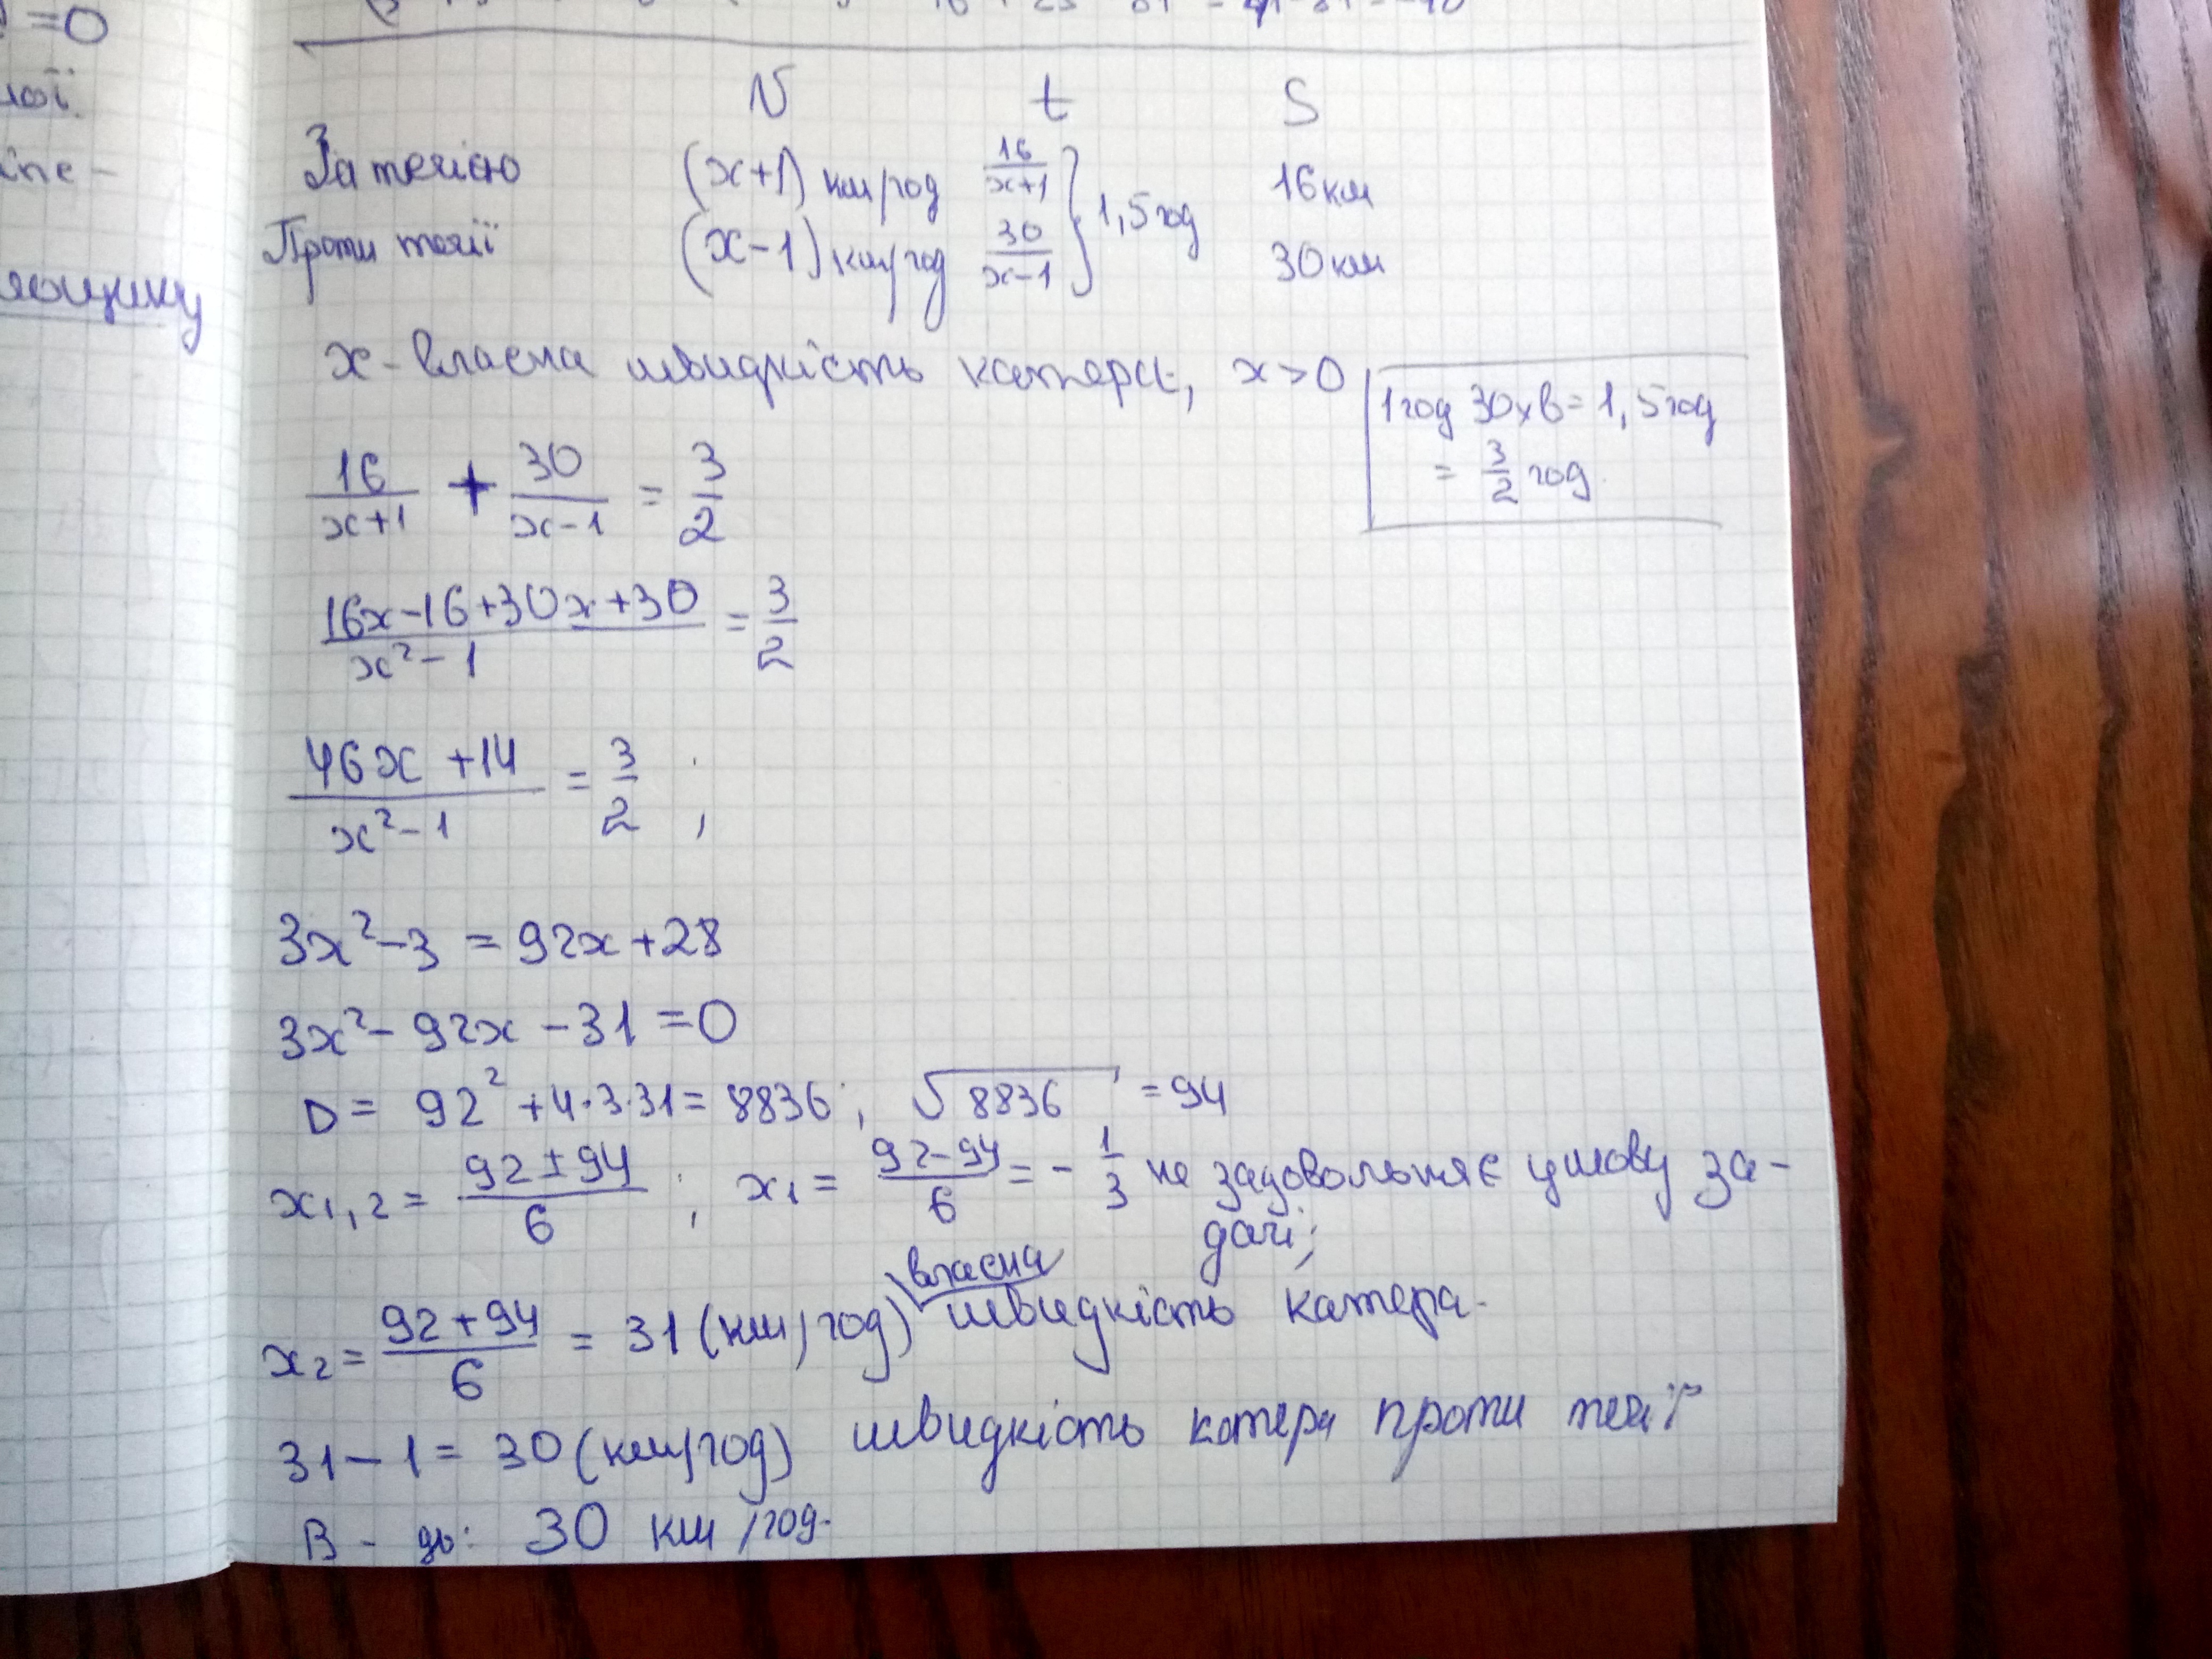 =0
16+25
V t S
За течією (x+1) км/год 16/(x+1) } 1,5 год 16 км
Проти течії (x-1) км/год 30/(x-1) 30 км
x - власна швидкість катера, x > 0
1 год 30 хв = 1,5 год
= 3/2 год
16/(x+1) + 30/(x-1) = 3/2
(16x-16+30x+30)/(x²-1) = 3/2
(46x+14)/(x²-1) = 3/2 ;
3x²-3 = 92x+28
3x²-92x-31=0
D = 92²+4·3·31 = 8836; √8836 = 94
x1,2 = (92±94)/6 ; x1 = (92-94)/6 = -1/3 не задовольняє умову за-
дачі;
x2 = (92+94)/6 = 31 (км/год) власна швидкість катера.
31-1 = 30 (км/год) швидкість катера проти течії
В-дь: 30 км/год.